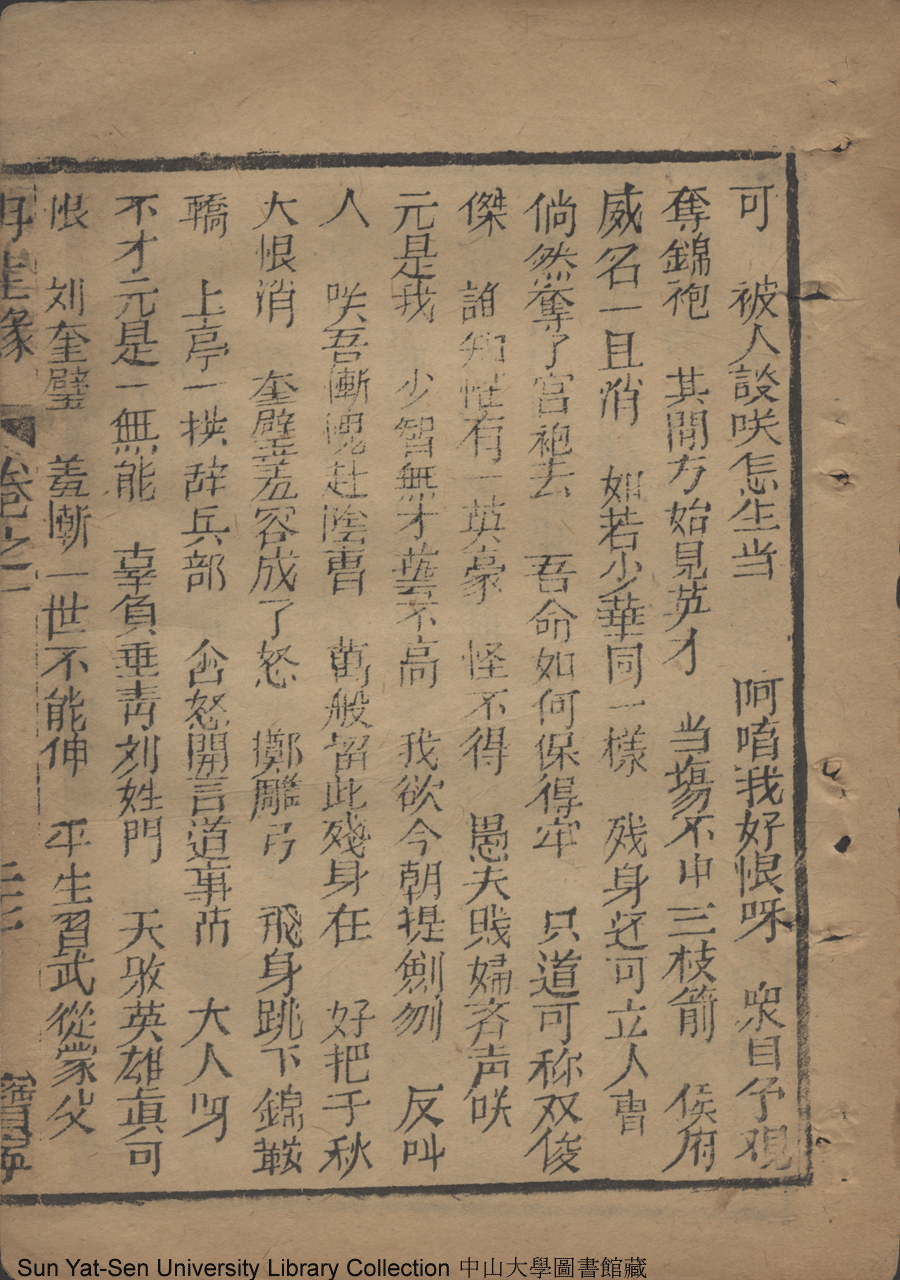 可　被人談咲怎生当　　阿唷我好恨呀　衆目予观
奪錦袍　其間方始見英才　当塲不中三枝箭　侯府
威名一旦消　如若少華同一樣　残身还可立人曹
倘然奪了宫袍去　吾命如何保得牢　只道可称双俊
傑　誰知惟有一英豪　怪不得　愚夫賤婦吝声咲
元是我　少智無才藝不高　我欲今朝提劍刎　反叫
人　咲吾慚愧赴陰曹　萬般留此殘身在　好把于秋
大恨消　奎璧羞容成了怒　擲雕弓　飛身跳下錦鞍
轎　上亭一揖辞兵部　含怒開言道事而　大人呀
不才元是一無能　辜負垂青刘姓門　天败英雄眞可
恨　刘奎璧　羞慚一世不能伸　平生習武從蒙父
再生緣　卷之二　寶寧